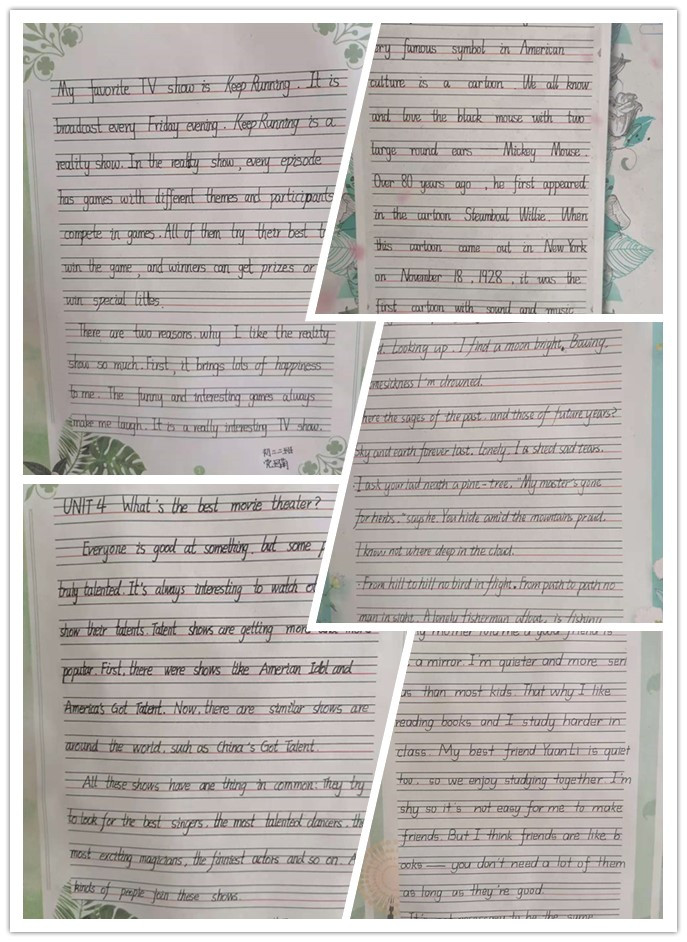 My favorite TV show is Keep Running. It is
broadcast every Friday evening. Keep Running is a
reality show. In the reality show, every episode
has games with different themes and participants
compete in games. All of them try their best t
win the game, and winners can get prizes or
win special titles.
There are two reasons why I like the reality
show so much. First, it brings lots of happiness
to me. The funny and interesting games always
make me laugh. It is a really interesting TV show.
初二二班
ry famous symbol in American
culture is a cartoon. We all know
and love the black mouse with two
large round ears — Mickey Mouse.
Over 80 years ago, he first appeared
in the cartoon Steamboat Willie. When
this cartoon came out in New York
on November 18, 1928, it was the
first cartoon with sound and music
d. Looking up, I find a moon bright, Bowing,
mesickness I'm drowned.
here the sages of the past, and those of future years?
Sky and earth forever last, Lonely, I a shed sad tears.
I ask your lad neath a pine-tree, "My master's gone
for herbs," says he. You hide amid the mountains proud,
I know not where deep in the cloud.
From hill to hill no bird in flight, From path to path no
man in sight, A lonely fisherman afloat, is fishing
UNIT 4 What's the best movie theater?
Everyone is good at something, but some p
truly talented. It's always interesting to watch o
show their talents. Talent shows are getting more and more
popular. First, there were shows like Amerian Idol and
America's Got Talent. Now, there are similar shows are
around the world, such as China's Got Talent.
All these shows have one thing in common: They try
to look for the best singers, the most talented dancers, the
most exciting magicians, the finniest actors and so on. A
kinds of people join these shows.
my mother told me a good friend is
a mirror. I'm quieter and more seri
us than most kids. That why I like
reading books and I study harder in
class. My best friend Yuan Li is quiet
too, so we enjoy studying together. I'm
shy so it's not easy for me to make
friends. But I think friends are like b
ooks — you don't need a lot of them
as long as they're good.
It's not necessary to be the same